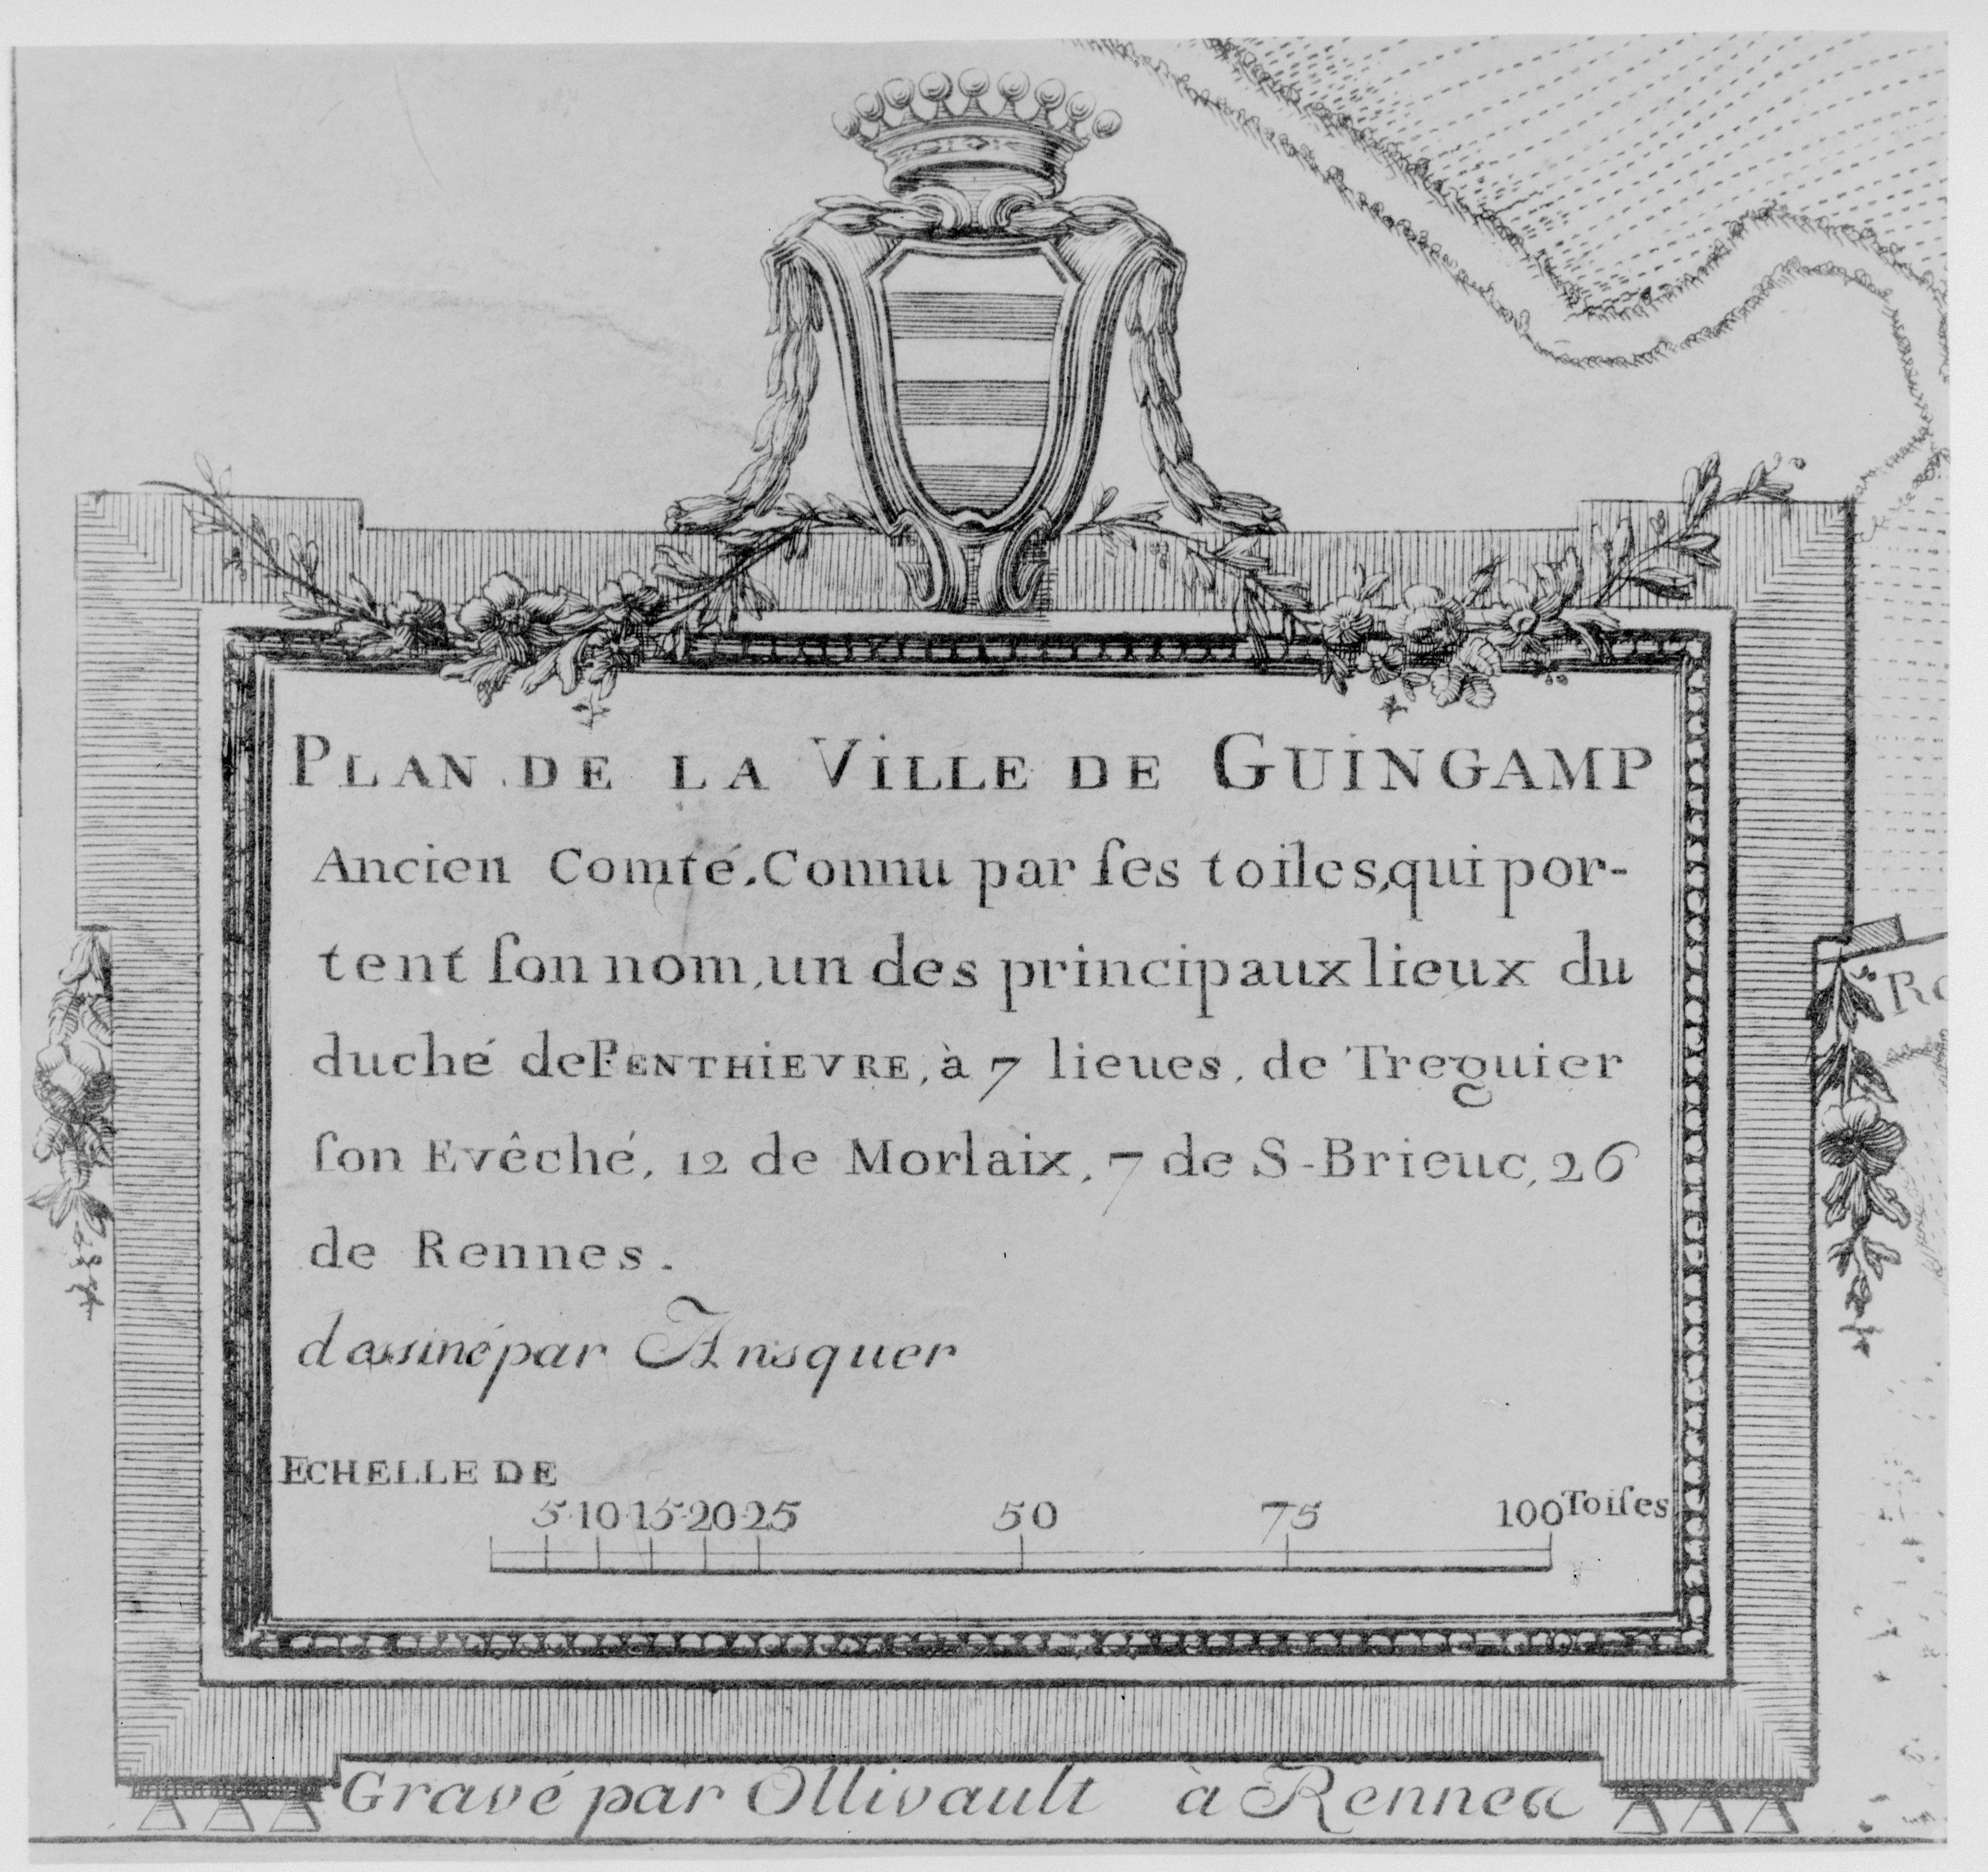 PLAN DE LA VILLE DE GUINGAMP
Ancien Comté. Connu par ſes toiles, qui por-
tent ſon nom, un des principaux lieux du
duché de PENTHIEVRE, à 7 lieues, de Treguier
ſon Evêché, 12 de Morlaix, 7 de S-Brieuc, 26
de Rennes.
dessiné par Ansquer
ECHELLE DE
5 10 15 20 25 50 75 100 Toiſes
Gravé par Ollivault à Rennes